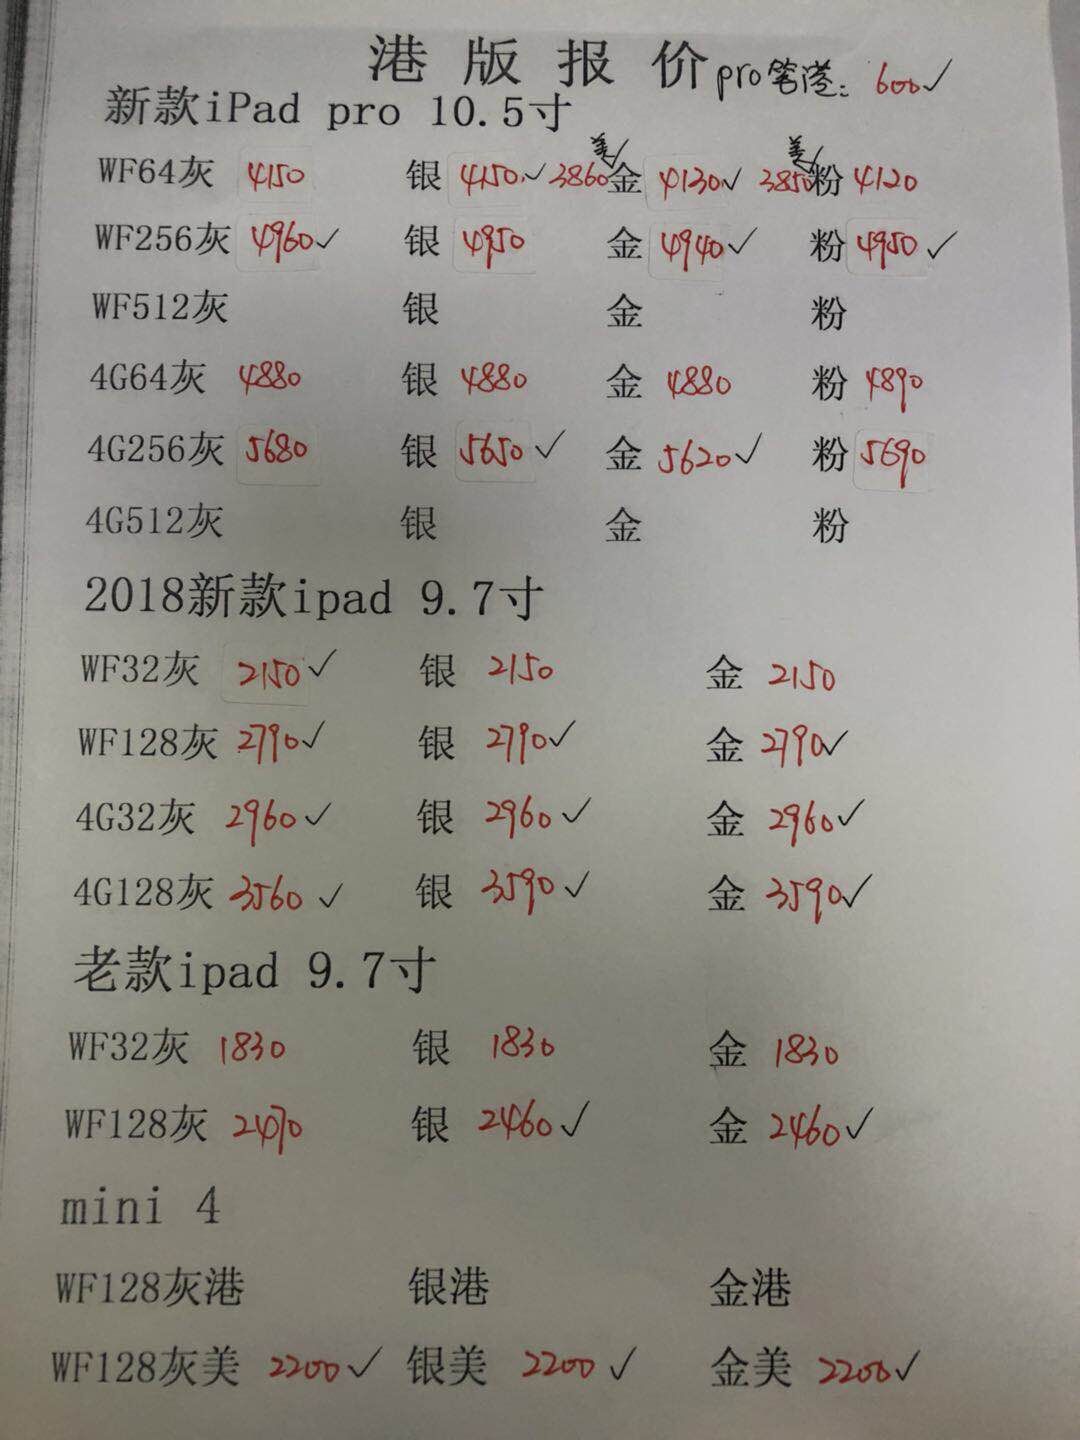 港版报价 pro笔港：600✓
新款iPad pro 10.5寸
美✓ 美✓
WF64灰 4150 银 4150✓ 3860 金 4130✓ 3850 粉 4120
WF256灰 4960✓ 银 4950 金 4940✓ 粉 4950✓
WF512灰 银 金 粉
4G64灰 4880 银 4880 金 4880 粉 4890
4G256灰 5680 银 5650✓ 金 5620✓ 粉 5690
4G512灰 银 金 粉
2018新款ipad 9.7寸
WF32灰 2150✓ 银 2150 金 2150
WF128灰 2790✓ 银 2790✓ 金 2790✓
4G32灰 2960✓ 银 2960✓ 金 2960✓
4G128灰 3560✓ 银 3590✓ 金 3590✓
老款ipad 9.7寸
WF32灰 1830 银 1830 金 1830
WF128灰 2470 银 2460✓ 金 2460✓
mini 4
WF128灰港 银港 金港
WF128灰美 2200✓ 银美 2200✓ 金美 2200✓